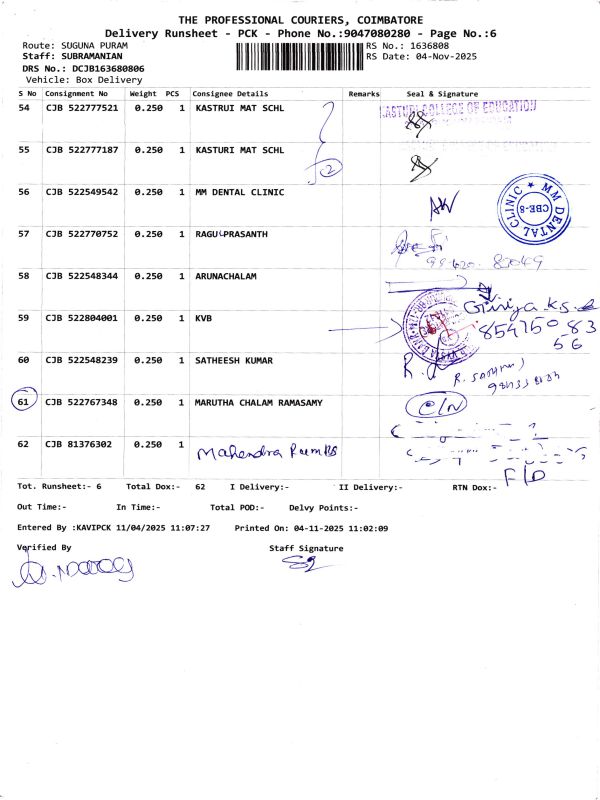 THE PROFESSIONAL COURIERS, COIMBATORE
Delivery Runsheet - PCK - Phone No.:9047080280 - Page No.:6
Route: SUGUNA PURAM
RS No.: 1636808
Staff: SUBRAMANIAN
RS Date: 04-Nov-2025
DRS No.: DCJB163680806
Vehicle: Box Delivery
S No Consignment No Weight PCS Consignee Details Remarks Seal & Signature
54 CJB 522777521 0.250 1 KASTRUI MAT SCHL
KASTURI COLLEGE OF EDUCATION
55 CJB 522777187 0.250 1 KASTURI MAT SCHL
2
56 CJB 522549542 0.250 1 MM DENTAL CLINIC
MM DENTAL CLINIC
CBE-8
57 CJB 522770752 0.250 1 RAGU PRASANTH
58 CJB 522548344 0.250 1 ARUNACHALAM
59 CJB 522804001 0.250 1 KVB
Girija.K.S.
85475083
56
60 CJB 522548239 0.250 1 SATHEESH KUMAR
61 CJB 522767348 0.250 1 MARUTHA CHALAM RAMASAMY
C/N
62 CJB 81376302 0.250 1 Mahendra
F/D
Tot. Runsheet:- 6 Total Dox:- 62 I Delivery:- II Delivery:- RTN Dox:-
Out Time:- In Time:- Total POD:- Delvy Points:-
Entered By :KAVIPCK 11/04/2025 11:07:27 Printed On: 04-11-2025 11:02:09
Verified By Staff Signature